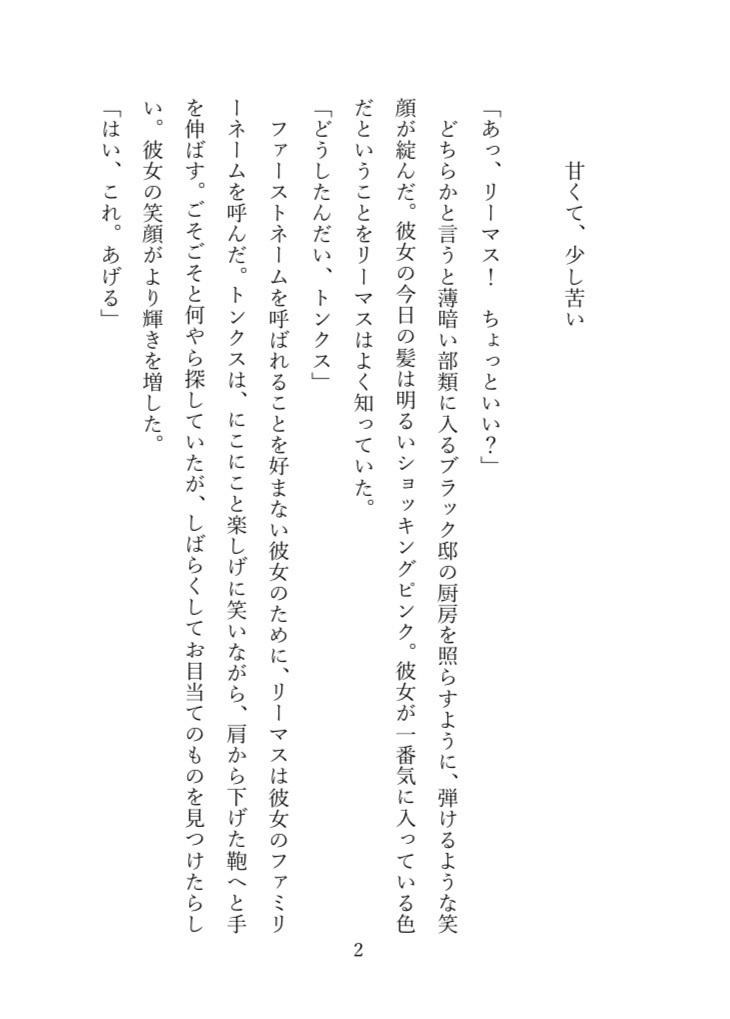 甘くて、少し苦い
「あっ、リーマス！　ちょっといい？」
　どちらかと言うと薄暗い部類に入るブラック邸の厨房を照らすように、弾けるような笑
顔が綻んだ。彼女の今日の髪は明るいショッキングピンク。彼女が一番気に入っている色
だということをリーマスはよく知っていた。
「どうしたんだい、トンクス」
　ファーストネームを呼ばれることを好まない彼女のために、リーマスは彼女のファミリ
ーネームを呼んだ。トンクスは、にこにこと楽しげに笑いながら、肩から下げた鞄へと手
を伸ばす。ごそごそと何やら探していたが、しばらくしてお目当てのものを見つけたらし
い。彼女の笑顔がより輝きを増した。
「はい、これ。あげる」
2